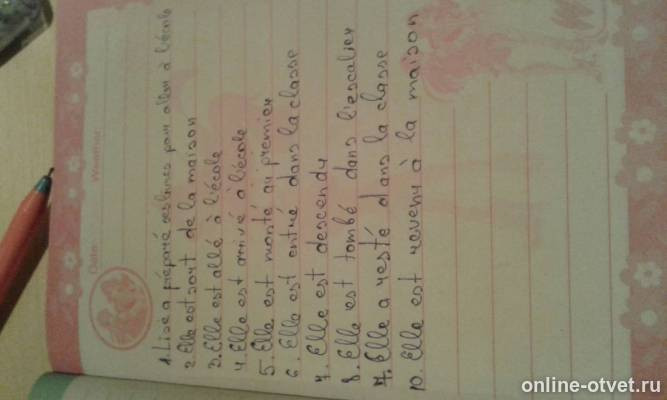 Date:
Weather:
1. Lise a préparé ses livres pour aller à l'école
2. Elle est sort de la maison
3. Elle est allé à l'école
4. Elle est arrivé à l'école
5. Elle est monté au premier
6. Elle est entré dans la classe
7. Elle est descendu
8. Elle est tombé dans l'escalier
9. Elle a resté dans la classe
10. Elle est revenu à la maison
online-otvet.ru